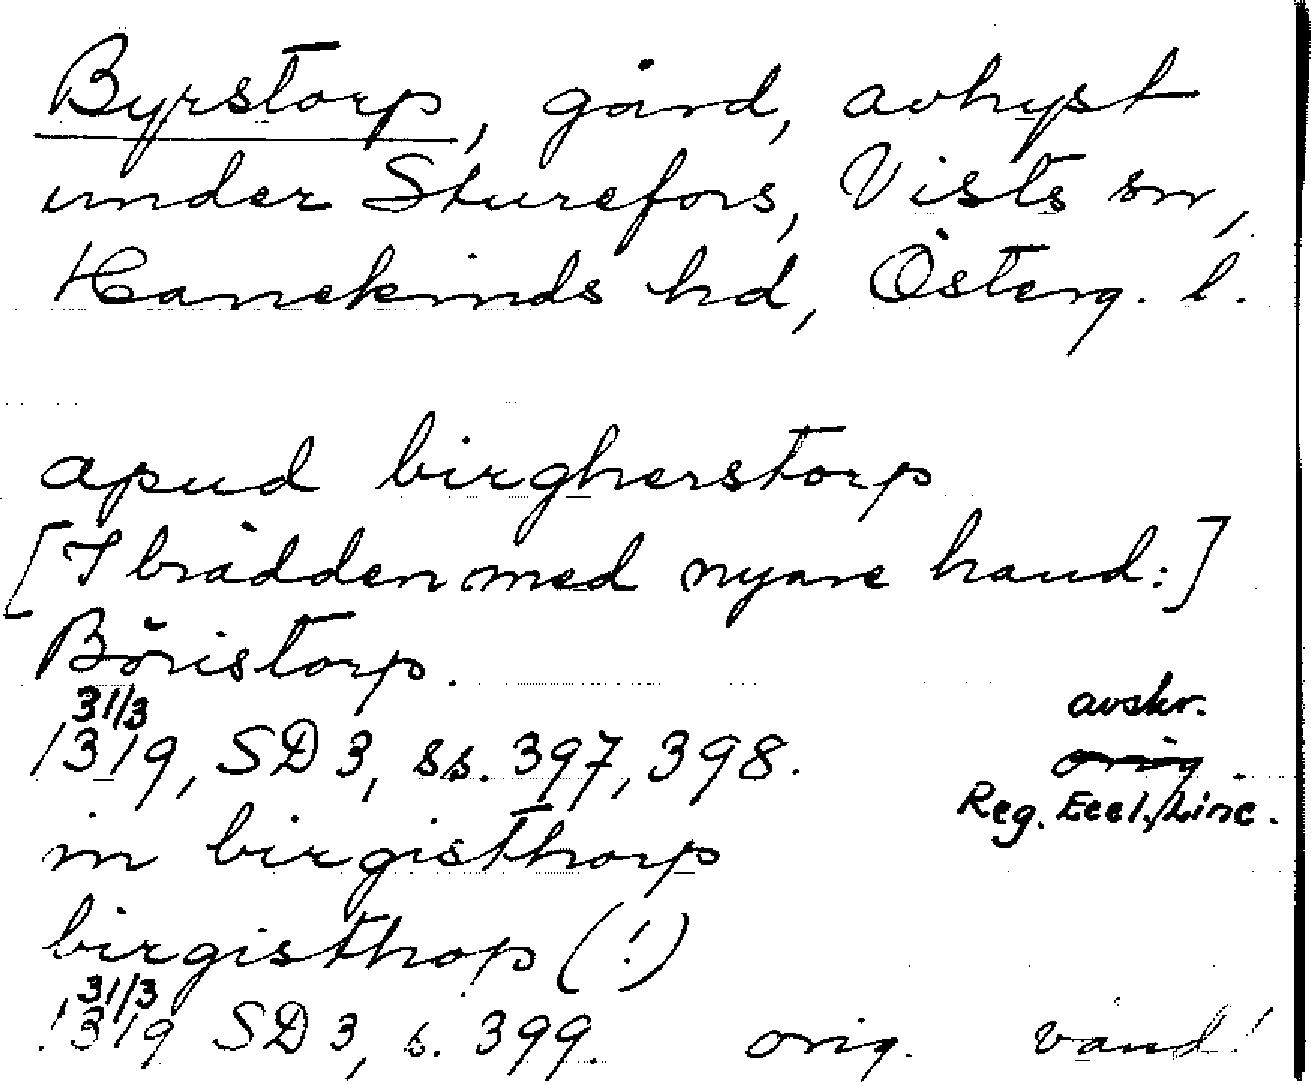 Byrstorp, gård, avhyst
under Sturefors, Vists sn,
Hanekinds hd, Österg. l.
apud birgherstorp
[I brädden med nyare hand:]
Böristorp.
31/3
1319, SD 3, ss. 397, 398.
avskr.
orig.
Reg. Eccl. Linc.
in birgisthorp
birgisthop (!)
31/3
1319 SD 3, s. 399. orig. vänd!